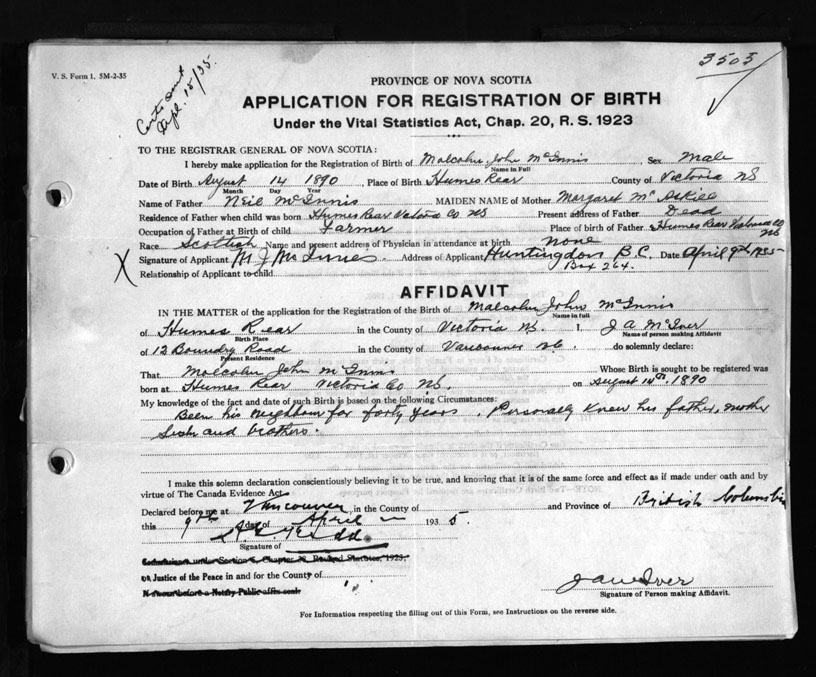 V. S. Form 1. 5M-2-35
3503
Apl. 15/35.
PROVINCE OF NOVA SCOTIA
APPLICATION FOR REGISTRATION OF BIRTH
Under the Vital Statistics Act, Chap. 20, R. S. 1923
TO THE REGISTRAR GENERAL OF NOVA SCOTIA:
I hereby make application for the Registration of Birth of Malcolm John McInnis Sex Male
Name in Full
Date of Birth August 14 1890, Place of Birth Humes Rear County of Victoria NS
Month Day Year
Name of Father Neil McInnis MAIDEN NAME of Mother Margaret Mc
Residence of Father when child was born Humes Rear Victoria Co NS Present address of Father Dead
Occupation of Father at Birth of child Farmer Place of birth of Father Humes Rear Co NS
Race Scottish Name and present address of Physician in attendance at birth None
Signature of Applicant M J McInnis Address of Applicant Huntingdon B.C. Date April 9th 1935
Box 264.
Relationship of Applicant to child
AFFIDAVIT
IN THE MATTER of the application for the Registration of the Birth of Malcolm John McInnis
Name in full
of Humes Rear in the County of Victoria NS. I, J A McIver
Birth Place Name of person making Affidavit
of 12 Boundry Road in the County of Vancouver do solemnly declare:
Present Residence
That Malcolm John McInnis Whose Birth is sought to be registered was
born at Humes Rear Victoria Co NS. on August 14th, 1890
My knowledge of the fact and date of such Birth is based on the following Circumstances:
Been his neighbour for forty years. Personally knew his father, mother
and brothers.
I make this solemn declaration conscientiously believing it to be true, and knowing that it is of the same force and effect as if made under oath and by
virtue of The Canada Evidence Act.
Declared before me at Vancouver, in the County of and Province of British Columbia
this 9th day of April 1935.
Signature of
Commissioner under Section 8, Chapter 20, Revised Statutes, 1923.
or Justice of the Peace in and for the County of
If sworn before a Notary Public affix seal
J A McIver
Signature of Person making Affidavit.
For Information respecting the filling out of this Form, see Instructions on the reverse side.